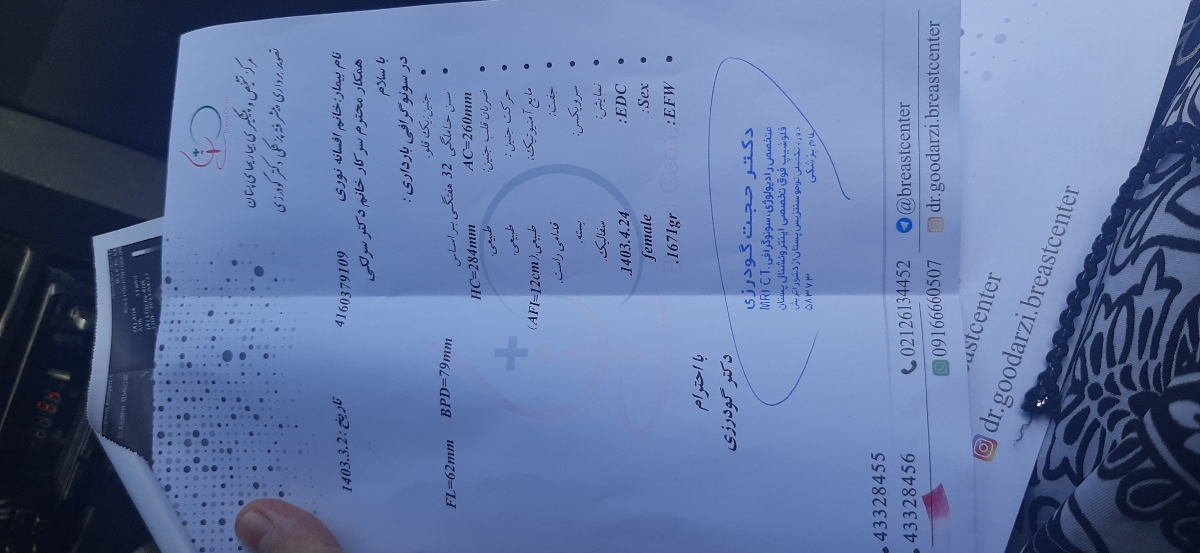 نام بیمار: خانم افسانه نوری 4160379109 تاریخ : 1403.3.2
همکار محترم سرکار خانم دکتر
با سلام
در سونوگرافی بارداری :
• جنین: یک قلو.
• سن حاملگی 32 هفتگی بر اساس BPD=79mm FL=62mm
AC=260mm HC=284mm
• ضربان قلب جنین: طبیعی
• حرکت جنین : طبیعی
• مایع آمنیوتیک: طبیعی.(AFI=12cm)
• جفت: قدامی راست.
• سرویکس: بسته.
• نمایش: سفالیک
• EDC: 1403.4.24
• Sex: female
• EFW: 1671gr.
با احترام
دکتر گودرزی
دکتر حجت گودرزی
متخصص رادیولوژی، سونوگرافی، MRI CT
فلوشیپ فوق تخصصی اینترونشنال پستان
02126134452 @breastcenter
09166660507 dr.goodarzi.breastcenter
• 43328455
• 43328456
astcenter
dr.goodarzi.breastcenter